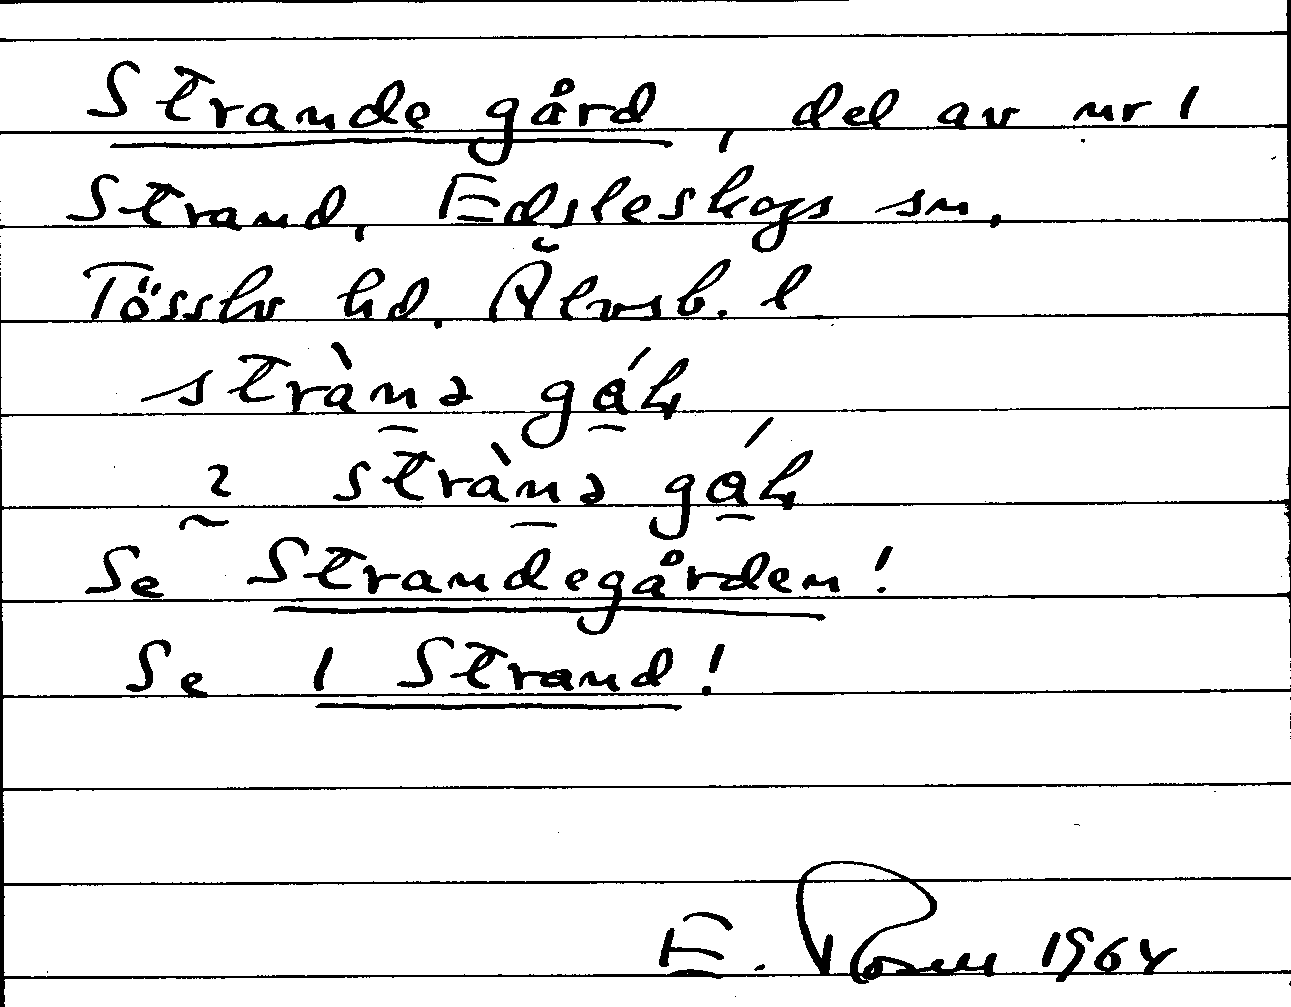 Strande gård, del av nr 1
Strand, Edsleskogs sn,
Tössbo hd. Älvsb. l
stràna gá
2 stràna gá
Se Strandegården!
Se 1 Strand!
E. Rosen 1964